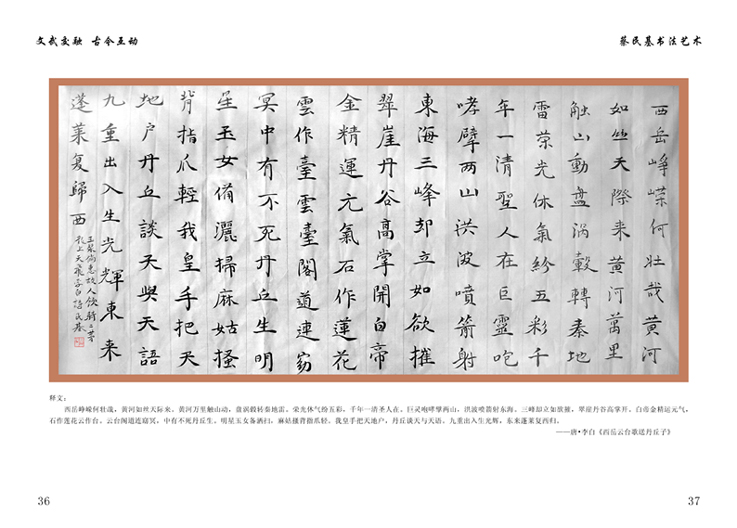 文武交融 古今互动
蔡民基书法艺术
西岳崢嶸何壮哉黄河
如丝天際来黄河萬里
触山動盘涡轂轉秦地
雷荣光休氣紛五彩千
年一清聖人在巨靈咆
哮擘两山洪波噴箭射
東海三峰却立如欲摧
翠崖丹谷高掌開白帝
金精運元氣石作蓮花
雲作臺雲臺閣道連窈
冥中有不死丹丘生明
星玉女備灑掃麻姑搔
背指爪輕我皇手把天
地户丹丘談天與天語
九重出入生光輝東来
蓬莱复歸西
玉漿倘惠故人飲騎二茅
龍上天飛李白詩民基
释文：
西岳峥嵘何壮哉，黄河如丝天际来。黄河万里触山动，盘涡毂转秦地雷。荣光休气纷五彩，千年一清圣人在。巨灵咆哮擘两山，洪波喷箭射东海。三峰却立如欲摧，翠崖丹谷高掌开。白帝金精运元气，
石作莲花云作台。云台阁道连窈冥，中有不死丹丘生。明星玉女备洒扫，麻姑搔背指爪轻。我皇手把天地户，丹丘谈天与天语。九重出入生光辉，东来蓬莱复西归。
——唐·李白《西岳云台歌送丹丘子》
36
37